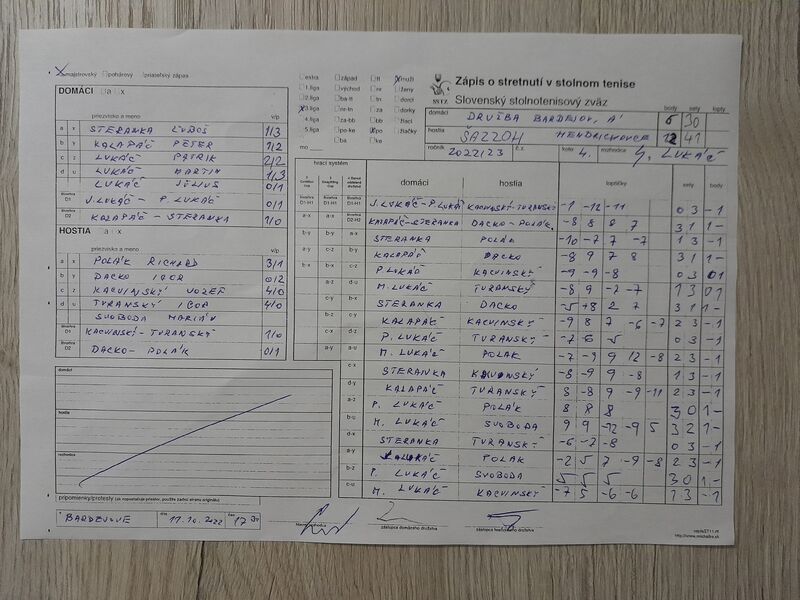 X majstrovský pohárový priateľský zápas
DOMÁCI a x
priezvisko a meno v/p
a x STERANKA ĽUBOŠ 1/3
b y KALAPÁČ PETER 1/2
c z LUKÁČ PATRIK 2/2
d u LUKÁČ MARTIN 1/3
LUKÁČ JÚLIUS 0/1
D1 J. LUKÁČ - P. LUKÁČ 0/1
D2 KALAPÁČ - STERANKA 1/0
HOSTIA a x
priezvisko a meno v/p
a x POLÁK RICHARD 3/1
b y DACKO IGOR 0/2
c z KACVINSKÝ JOZEF 4/0
d u TURANSKÝ IGOR 4/0
SVOBODA MARIÁN
D1 KACVINSKÝ - TURANSKÝ 1/0
D2 DACKO - POLÁK 0/1
domáci
hostia
rozhodca
pripomienky/protesty
BARDEJOVE dňa 17.10.2022 čas 17
extra západ muži
1.liga východ nr ženy
2.liga ba-tt dorci
3.liga nr-tn dorky
4.liga za-bb žiaci
5.liga po-ke po žiačky
mo ba ke
Zápis o stretnutí v stolnom tenise
SSTZ Slovenský stolnotenisový zväz
body sety lopty
domáci DRUŽBA BARDEJOV "A" 6 30
hostia SAZZOH HENDRICHOVCE 12 41
ročník 2022/23 č.z. kolo 4. rozhodca J. LUKÁČ
hrací systém domáci hostia loptičky sety body
J. LUKÁČ - P. LUKÁČ KACVINSKÝ-TURANSKÝ -1 -12 -11 0 3 - 1
KALAPÁČ-STERANKA DACKO - POLÁK -8 8 8 7 3 1 1 -
STERANKA POLÁK -10 -7 7 -7 1 3 - 1
KALAPÁČ DACKO -8 9 7 8 3 1 1 -
P. LUKÁČ KACVINSKÝ -9 -9 -8 0 3 0 1
M. LUKÁČ TURANSKÝ -8 9 -2 -7 1 3 0 1
STERANKA DACKO -5 +8 2 7 3 1 1 -
KALAPÁČ KACVINSKÝ -9 8 7 -6 -7 2 3 - 1
P. LUKÁČ TURANSKÝ -7 -6 -5 0 3 - 1
M. LUKÁČ POLÁK -7 -9 9 12 -8 2 3 - 1
STERANKA KACVINSKÝ -8 -9 9 -8 1 3 - 1
KALAPÁČ TURANSKÝ 8 -8 9 -9 -11 2 3 - 1
P. LUKÁČ POLÁK 8 8 8 3 0 1 -
M. LUKÁČ SVOBODA 9 9 -12 -9 5 3 2 1 -
STERANKA TURANSKÝ -6 -2 -8 0 3 - 1
KALAPÁČ POLÁK -2 5 7 -9 -8 2 3 - 1
P. LUKÁČ SVOBODA 5 5 5 3 0 1 -
M. LUKÁČ KACVINSKÝ -7 5 -6 -6 1 3 - 1
hlavný rozhodca zástupca domáceho družstva zástupca hosťujúceho družstva